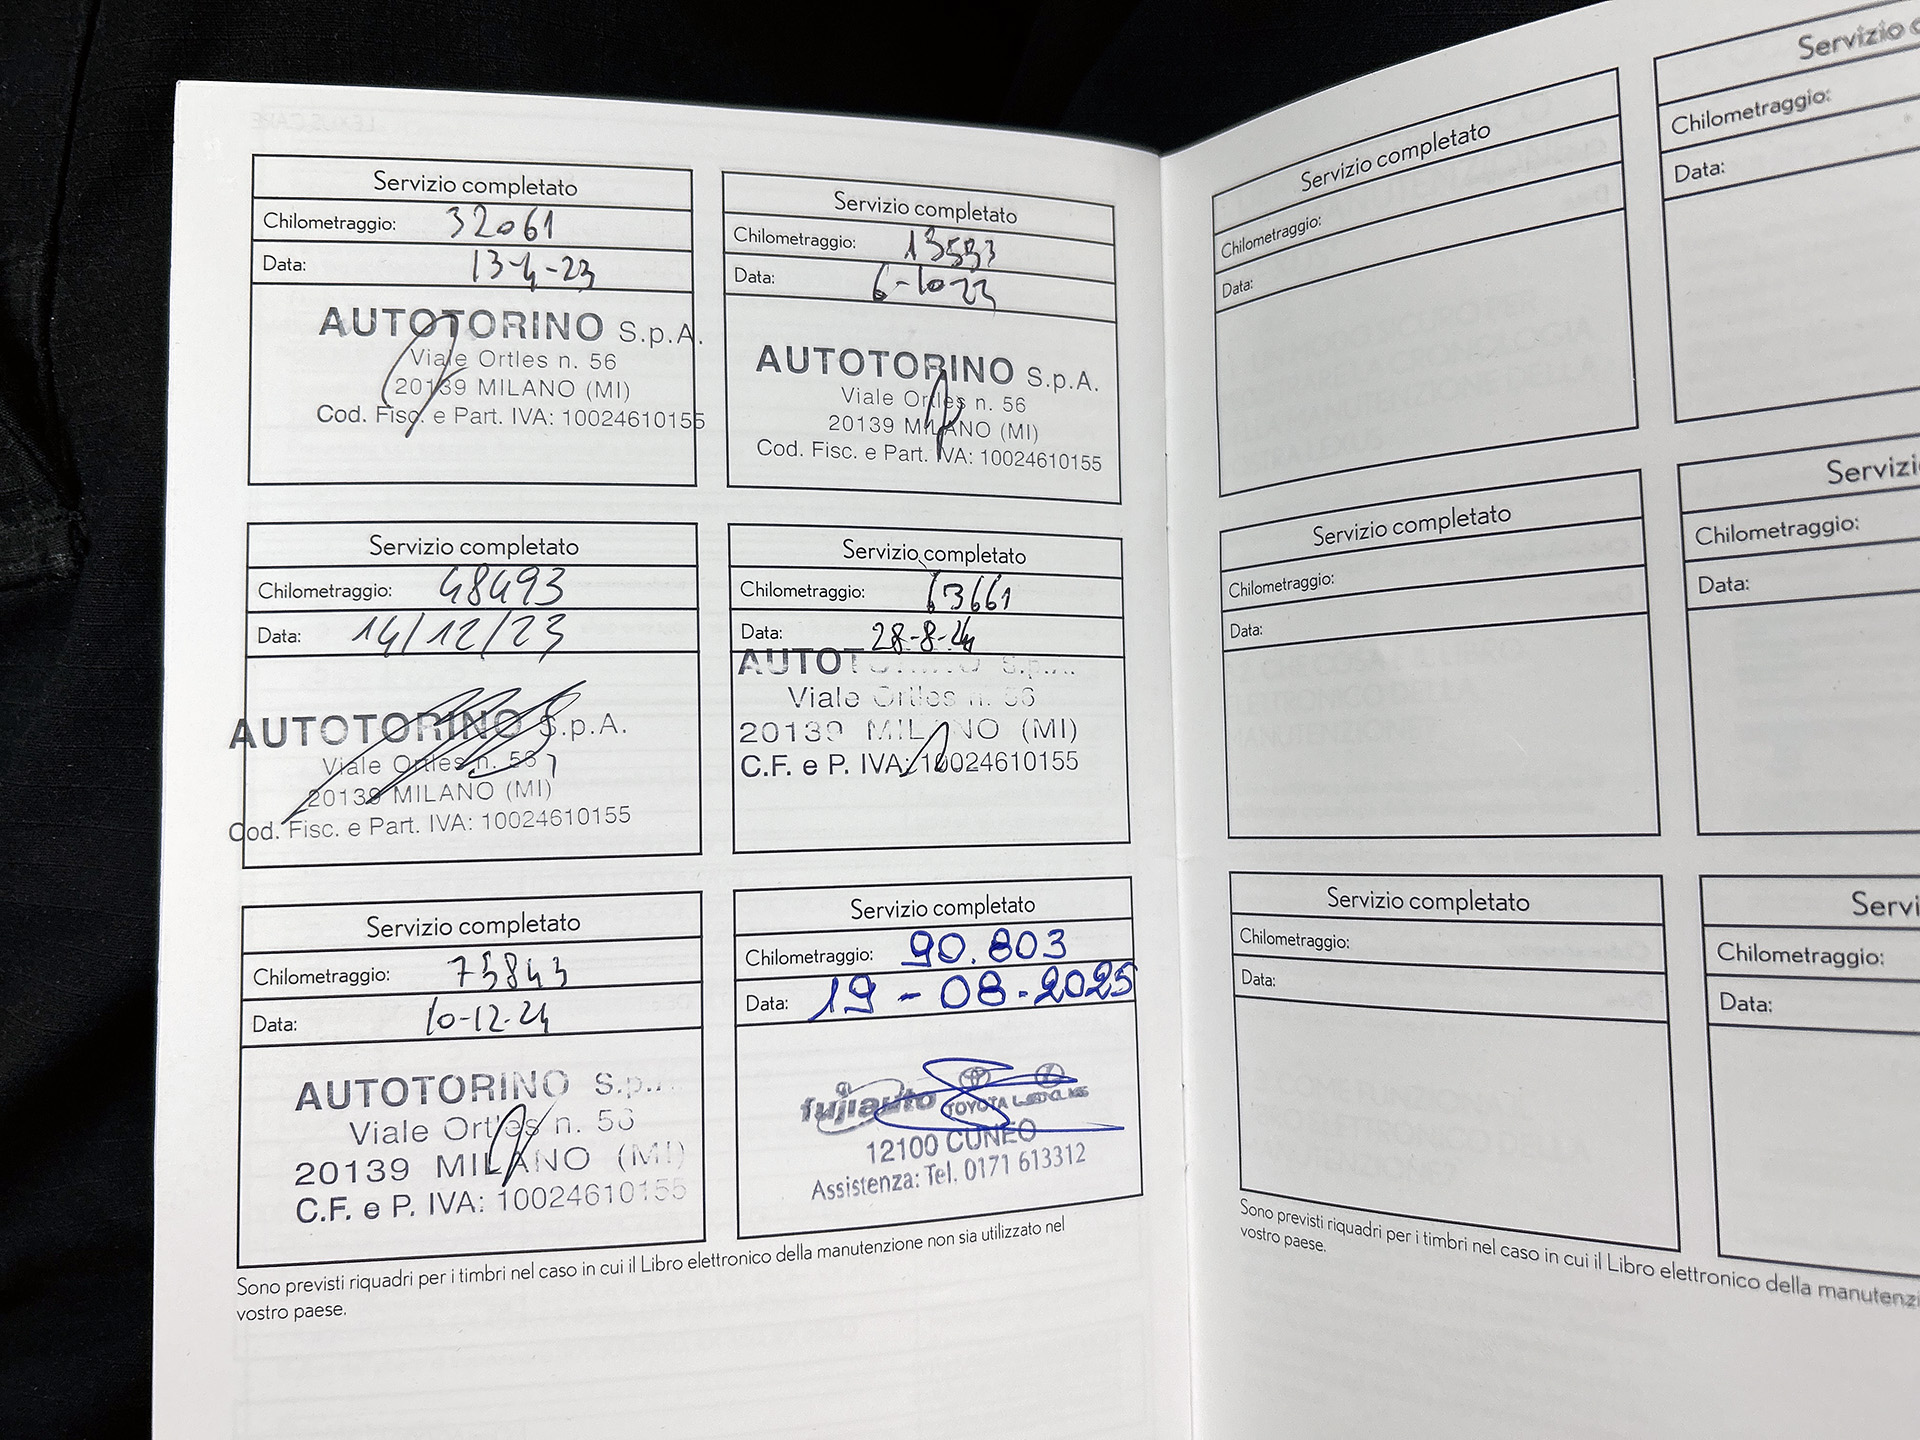 Servizio completato
Chilometraggio: 32061
Data: 13-4-23
AUTOTORINO S.p.A.
Viale Ortles n. 56
20139 MILANO (MI)
Cod. Fisc. e Part. IVA: 10024610155
Servizio completato
Chilometraggio: 13593
Data: 6-10-22
AUTOTORINO S.p.A.
Viale Ortles n. 56
20139 MILANO (MI)
Cod. Fisc. e Part. IVA: 10024610155
Servizio completato
Chilometraggio: 48493
Data: 14/12/23
AUTOTORINO S.p.A.
Viale Ortles n. 56
20139 MILANO (MI)
Cod. Fisc. e Part. IVA: 10024610155
Servizio completato
Chilometraggio: 63661
Data: 28-8-24
AUTOTORINO S.p.A.
Viale Ortles n. 56
20139 MILANO (MI)
C.F. e P. IVA: 10024610155
Servizio completato
Chilometraggio: 75843
Data: 10-12-24
AUTOTORINO S.p.A.
Viale Ortles n. 56
20139 MILANO (MI)
C.F. e P. IVA: 10024610155
Servizio completato
Chilometraggio: 90.803
Data: 19-08-2025
fujiauto TOYOTA
12100 CUNEO
Assistenza: Tel. 0171 613312
Sono previsti riquadri per i timbri nel caso in cui il Libro elettronico della manutenzione non sia utilizzato nel
vostro paese.
Servizio completato
Chilometraggio:
Data:
Servizio
Chilometraggio:
Data:
Servizio completato
Chilometraggio:
Data:
Servizi
Chilometraggio:
Data:
Servizio completato
Chilometraggio:
Data:
Servi
Chilometraggio:
Data:
Sono previsti riquadri per i timbri nel caso in cui il Libro elettronico della manutenzi
vostro paese.